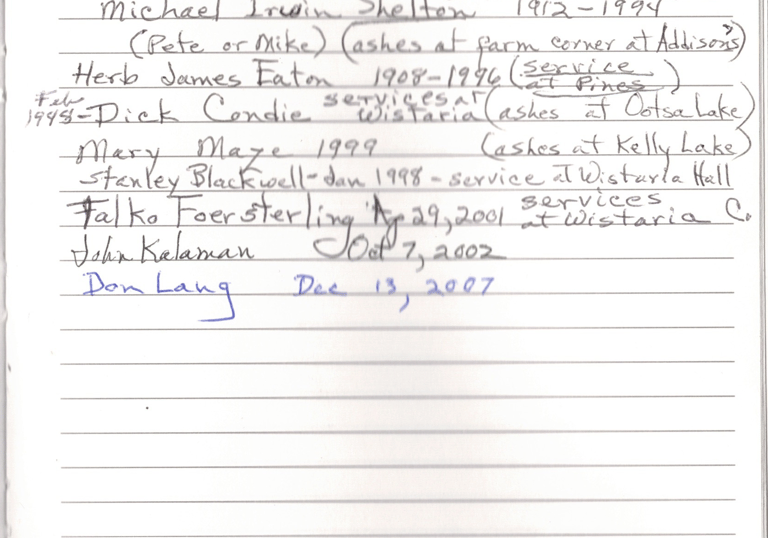 Michael Irwin Shelton 1912-1994
(Pete or Mike) (ashes at farm corner at Addison's)
Herb James Eaton 1908-1996 (service at Pines)
Feb 1998-Dick Condie services at Wistaria (ashes at Ootsa Lake)
Mary Maze 1999 (ashes at Kelly Lake)
Stanley Blackwell-Jan 1998-service at Wistaria Hall
Falko Foersterling Ap 29, 2001 services at Wistaria C.
John Kalaman Oct 7, 2002
Don Lang Dec 13, 2007